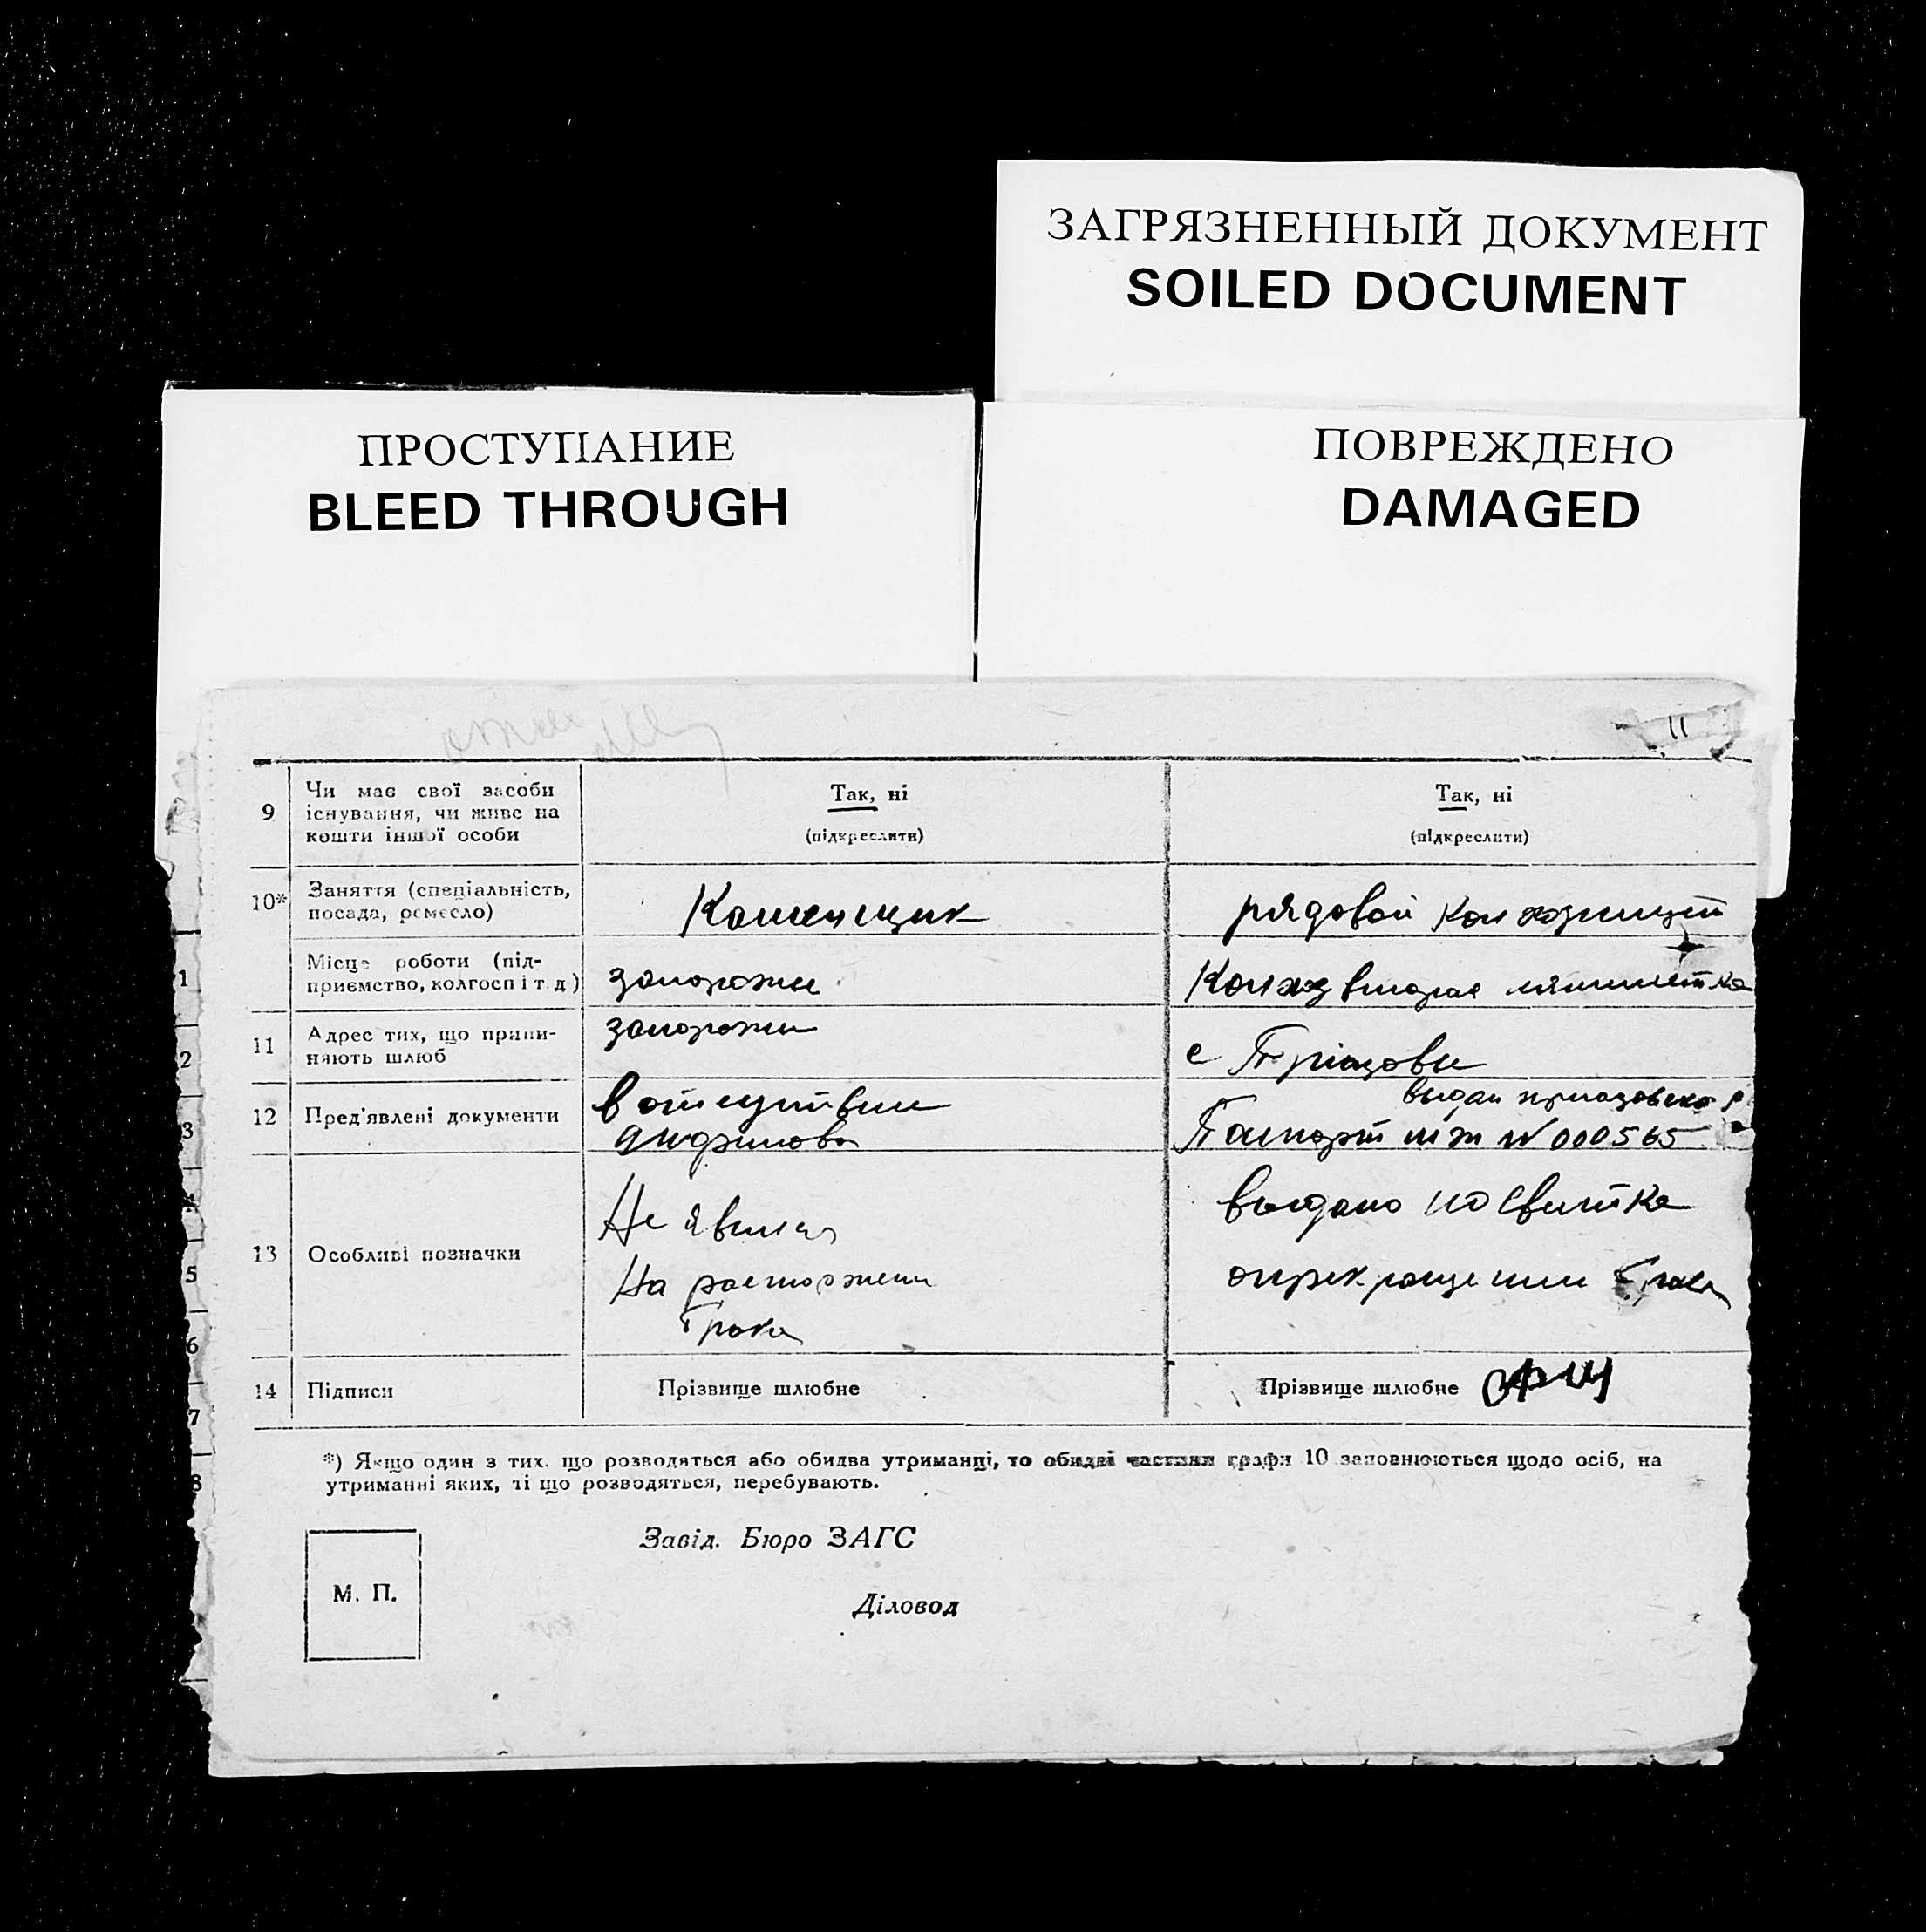 ЗАГРЯЗНЕННЫЙ ДОКУМЕНТ
SOILED DOCUMENT
ПРОСТУПАНИЕ
BLEED THROUGH
ПОВРЕЖДЕНО
DAMAGED
11
9
Чи має свої засоби
існування, чи живе на
кошти іншої особи
Так, ні
(підкреслити)
Так, ні
(підкреслити)
10*
Заняття (спеціальність,
посада, ремесло)
Каменщик
рядовой
Місце роботи (під-
приємство, колгосп і т. д)
запорожи
Колхоз вторая
11
Адрес тих, що припи-
няють шлюб
запорожи
с Пріазовы
12
Пред'явлені документи
в отсутствии
выдан приазовско
Паспорт № 000565
13
Особливі позначки
Не явился
На расторжени
брака
выдано
14
Підписи
Прізвище шлюбне
Прізвище шлюбне
*) Якщо один з тих, що розводяться або обидва утриманці, то обидві частини графи 10 заповнюються щодо осіб, на
утриманні яких, ті що розводяться, перебувають.
М. П.
Завід. Бюро ЗАГС
Діловод
1
2
3
4
5
6
7
8